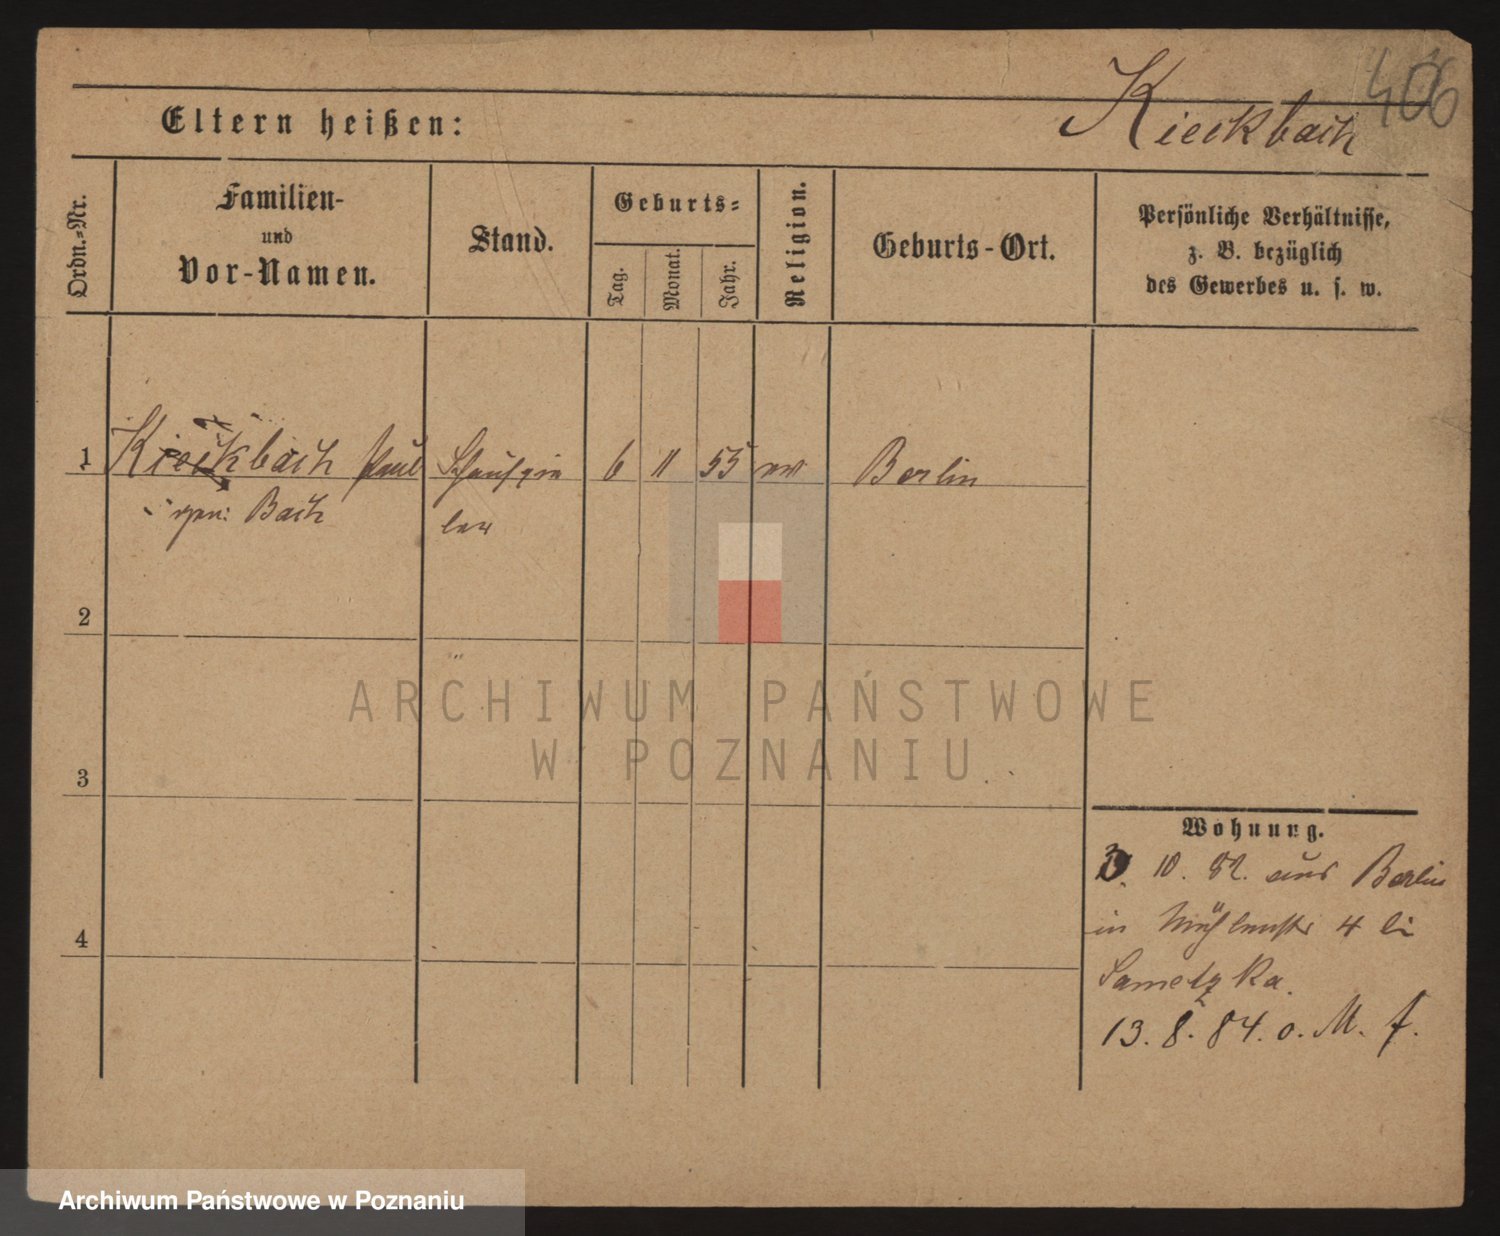 406
Kieckbach
Eltern heißen:
Ordn.=Nr.
Familien-
und
Vor-Namen.
Stand.
Geburts=
Tag.
Monat.
Jahr.
Religion.
Geburts-Ort.
Persönliche Verhältnisse,
z. B. bezüglich
des Gewerbes u. s. w.
1 Kieckbach Paul Schauspie 6 11 55 ev Berlin
gen: Bach ler
2
3
4
Wohnung.
3. 10. 82. aus Berlin
in Mühlenstr 4 bei
Sametzka.
13. 8. 84. o. M. f.
ARCHIWUM PAŃSTWOWE
W POZNANIU
Archiwum Państwowe w Poznaniu